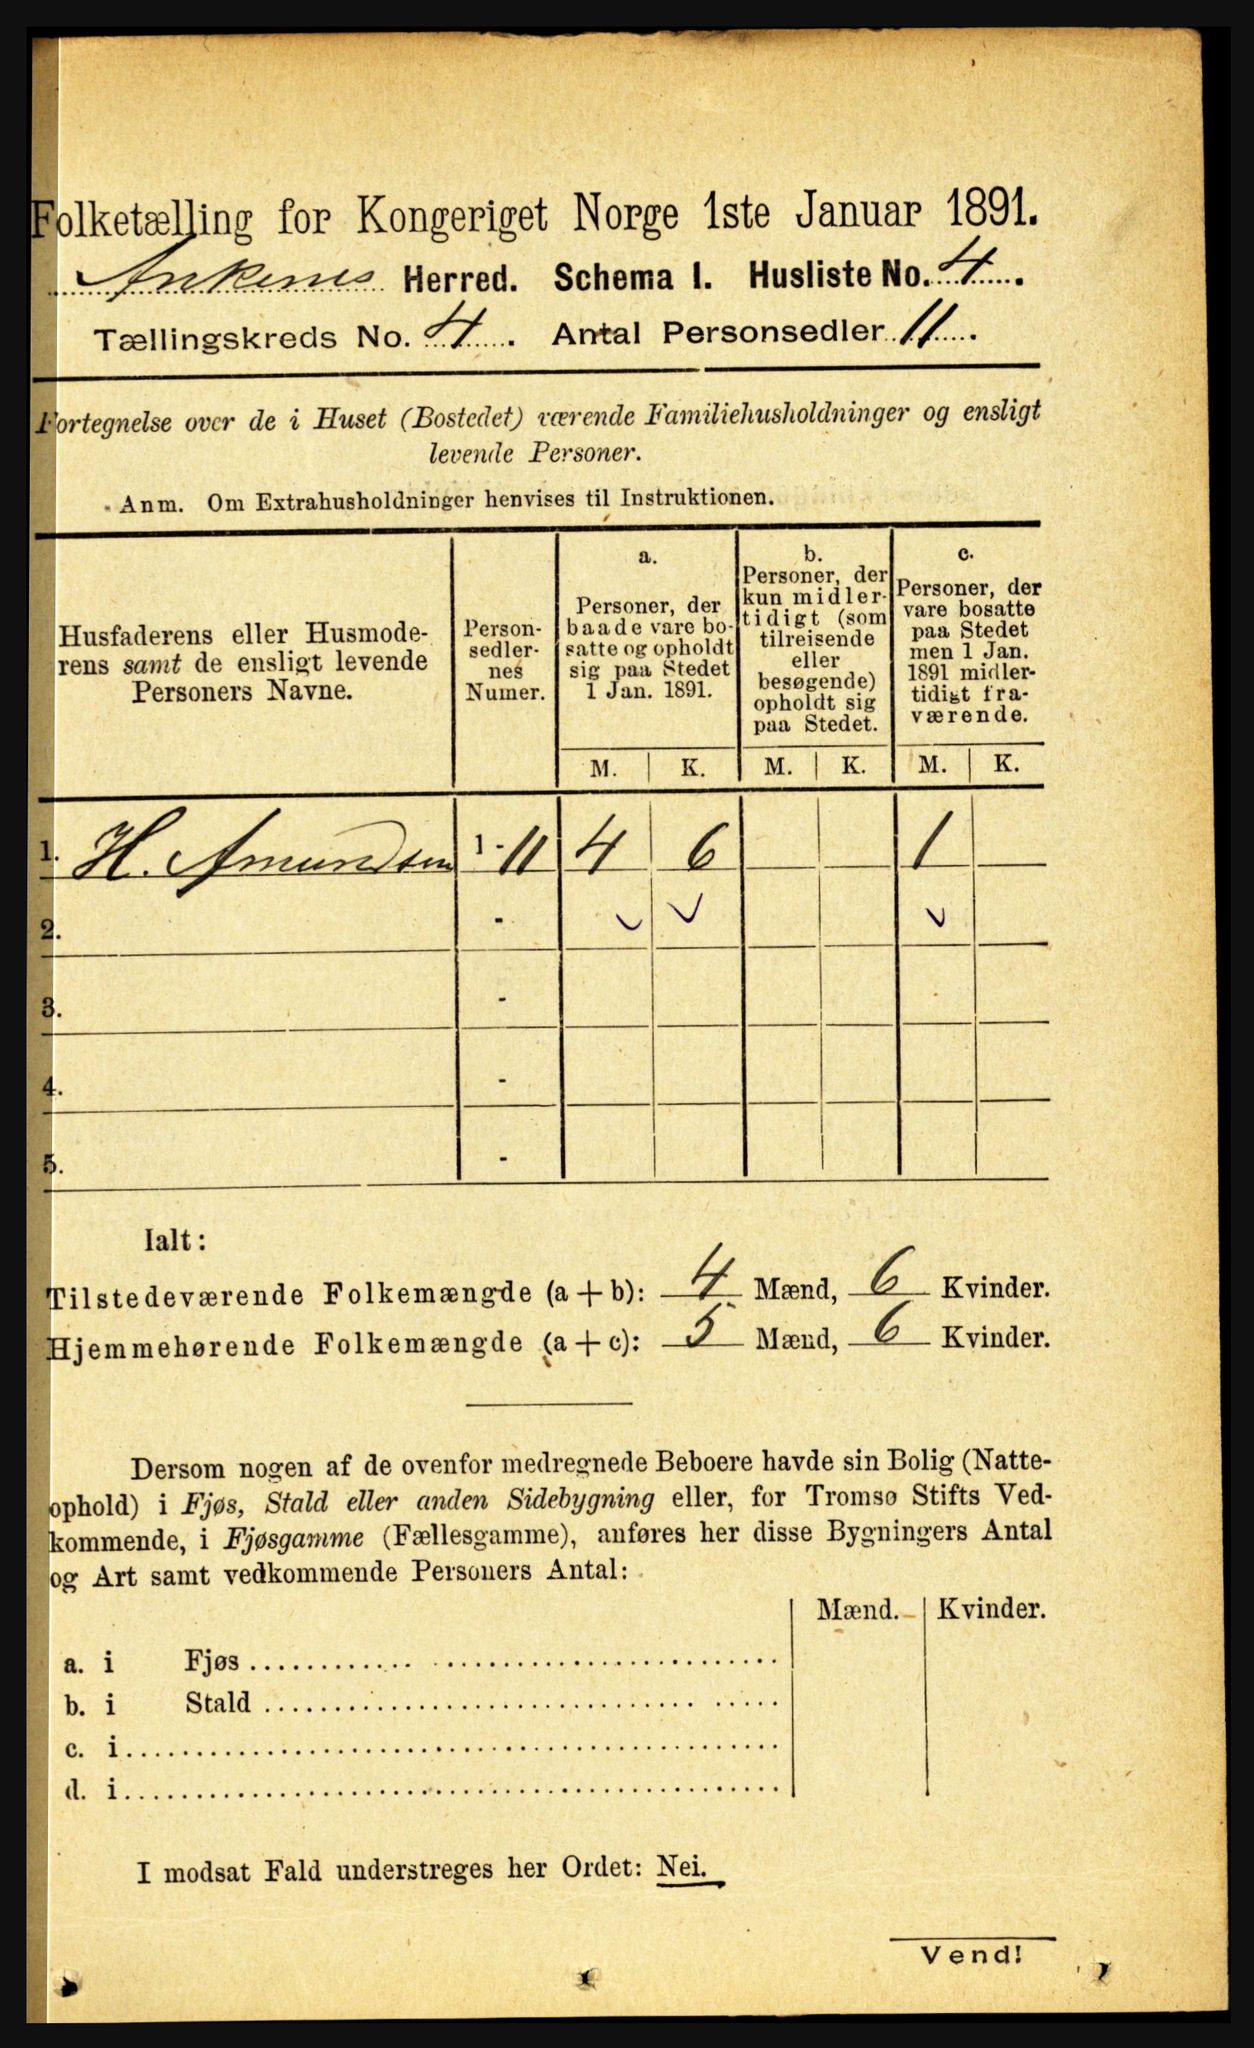 Folketælling for Kongeriget Norge 1ste Januar 1891.
Ankenes Herred. Schema 1. Husliste No. 4.
Tællingskreds No. 4. Antal Personsedler 11.
Fortegnelse over de i Huset (Bostedet) værende Familiehusholdninger og ensligt
levende Personer.
Anm. Om Extrahusholdninger henvises til Instruktionen.
Husfaderens eller Husmode-
rens samt de ensligt levende
Personers Navne.
Person-
sedler-
nes
Numer.
a.
Personer, der
baade vare bo-
satte og opholdt
sig paa Stedet
1 Jan. 1891.
b.
Personer, der
kun midler-
tidigt (som
tilreisende
eller
besøgende)
opholdt sig
paa Stedet.
c.
Personer, der
vare bosatte
paa Stedet
men 1 Jan.
1891 midler-
tidigt fra-
værende.
M. K. M. K. M. K.
1. H. Amundsen 1 - 11 4 6 1
2. -
3. -
4. -
5. -
Ialt:
Tilstedeværende Folkemængde (a + b): 4 Mænd, 6 Kvinder.
Hjemmehørende Folkemængde (a + c): 5 Mænd, 6 Kvinder.
Dersom nogen af de ovenfor medregnede Beboere havde sin Bolig (Natte-
ophold) i Fjøs, Stald eller anden Sidebygning eller, for Tromsø Stifts Ved-
kommende, i Fjøsgamme (Fællesgamme), anføres her disse Bygningers Antal
og Art samt vedkommende Personers Antal:
Mænd. Kvinder.
a. i Fjøs
b. i Stald
c. i
d. i
I modsat Fald understreges her Ordet: Nei.
Vend!